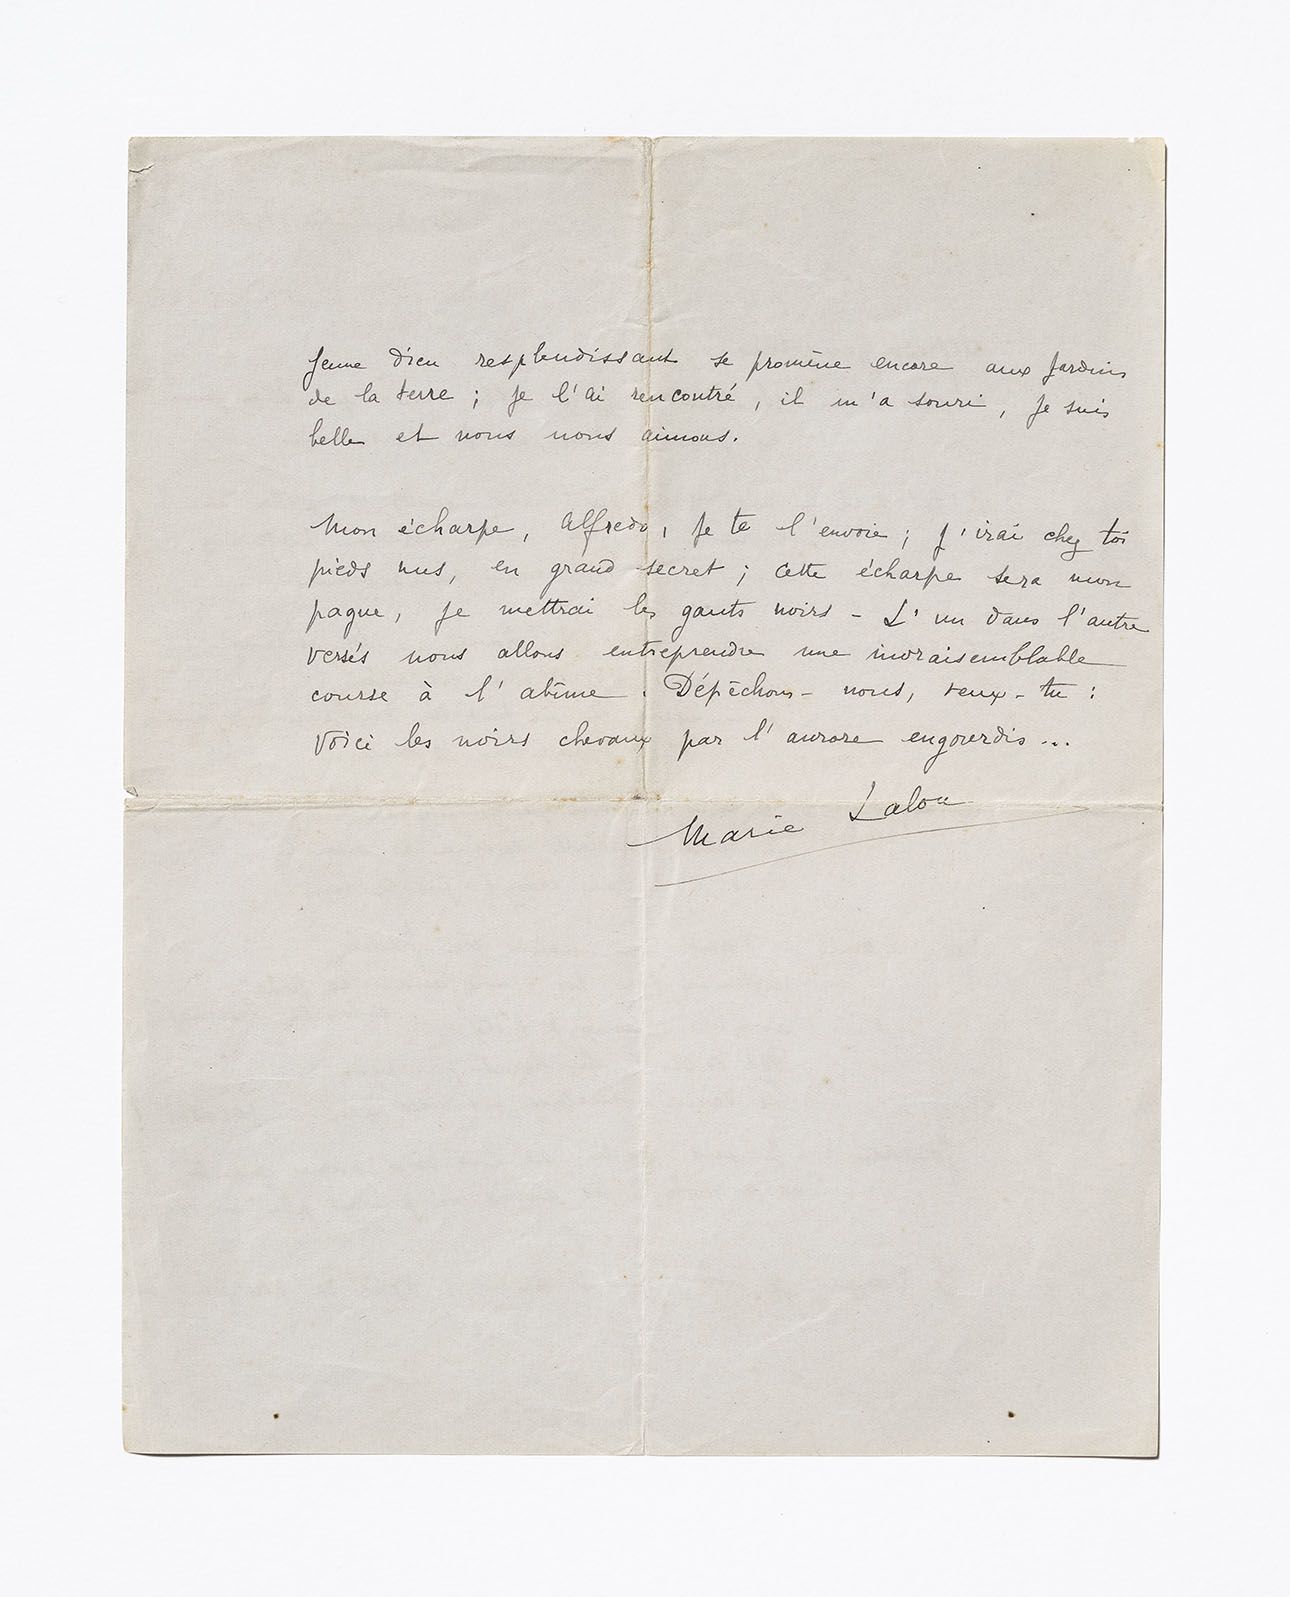 Jeune dieu resplendissant se promène encore aux jardins
de la terre ; je l'ai rencontré, il m'a souri, je suis
belle et nous nous aimons.
Mon écharpe, Alfredo, je te l'envoie ; j'irai chez toi
pieds nus, en grand secret ; cette écharpe sera mon
pagne, je mettrai les gants noirs - L'un dans l'autre
versés nous allons entreprendre une invraisemblable
course à l'abîme. Dépêchons-nous, veux-tu :
Voici les noirs chevaux par l'aurore engourdis ...
Marie Lalou